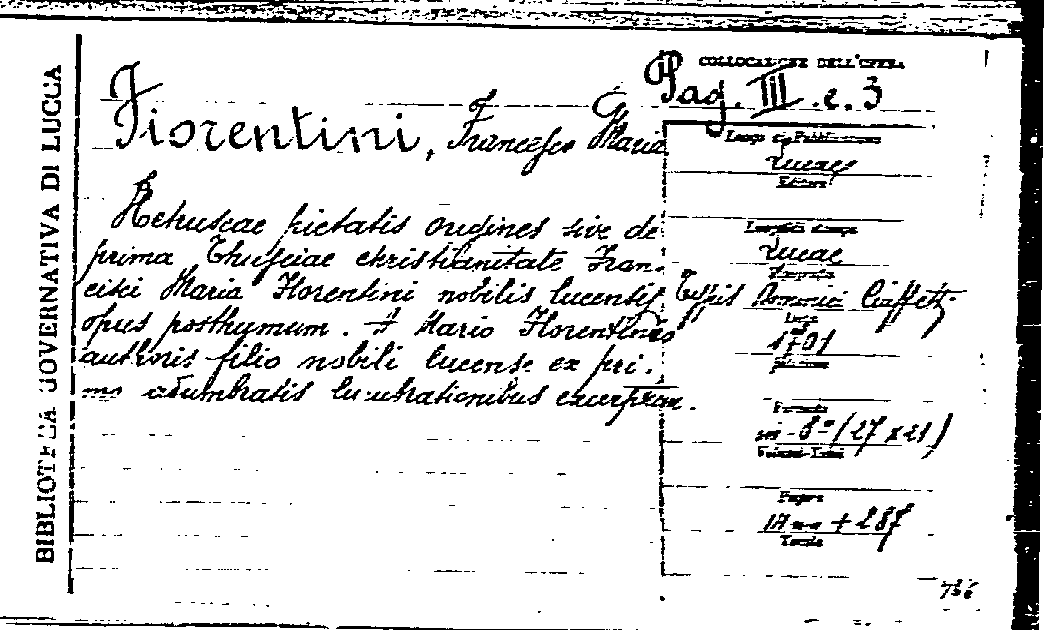 BIBLIOTECA GOVERNATIVA DI LUCCA
COLLOCAZIONE DELL'OPERA
Pag. III. e. 3
Fiorentini, Francesco Maria
Hetruscae pietatis origines sive de
prima Thusciae christianitate Fran-
cisci Maria Florentini nobilis lucensis
opus posthumum. A Mario Florentinio
authoris filio nobili lucense ex pri-
mo adumbratis lucubrationibus excerptum.
Luogo di Pubblicazione
Lucae
Editore
Lucae
Typis Dominici Ciuffetti
Data
1701
Formato
in-8º (27 x 21)
Volumi-Tomi
Pagine
+ 287
Tavole
736